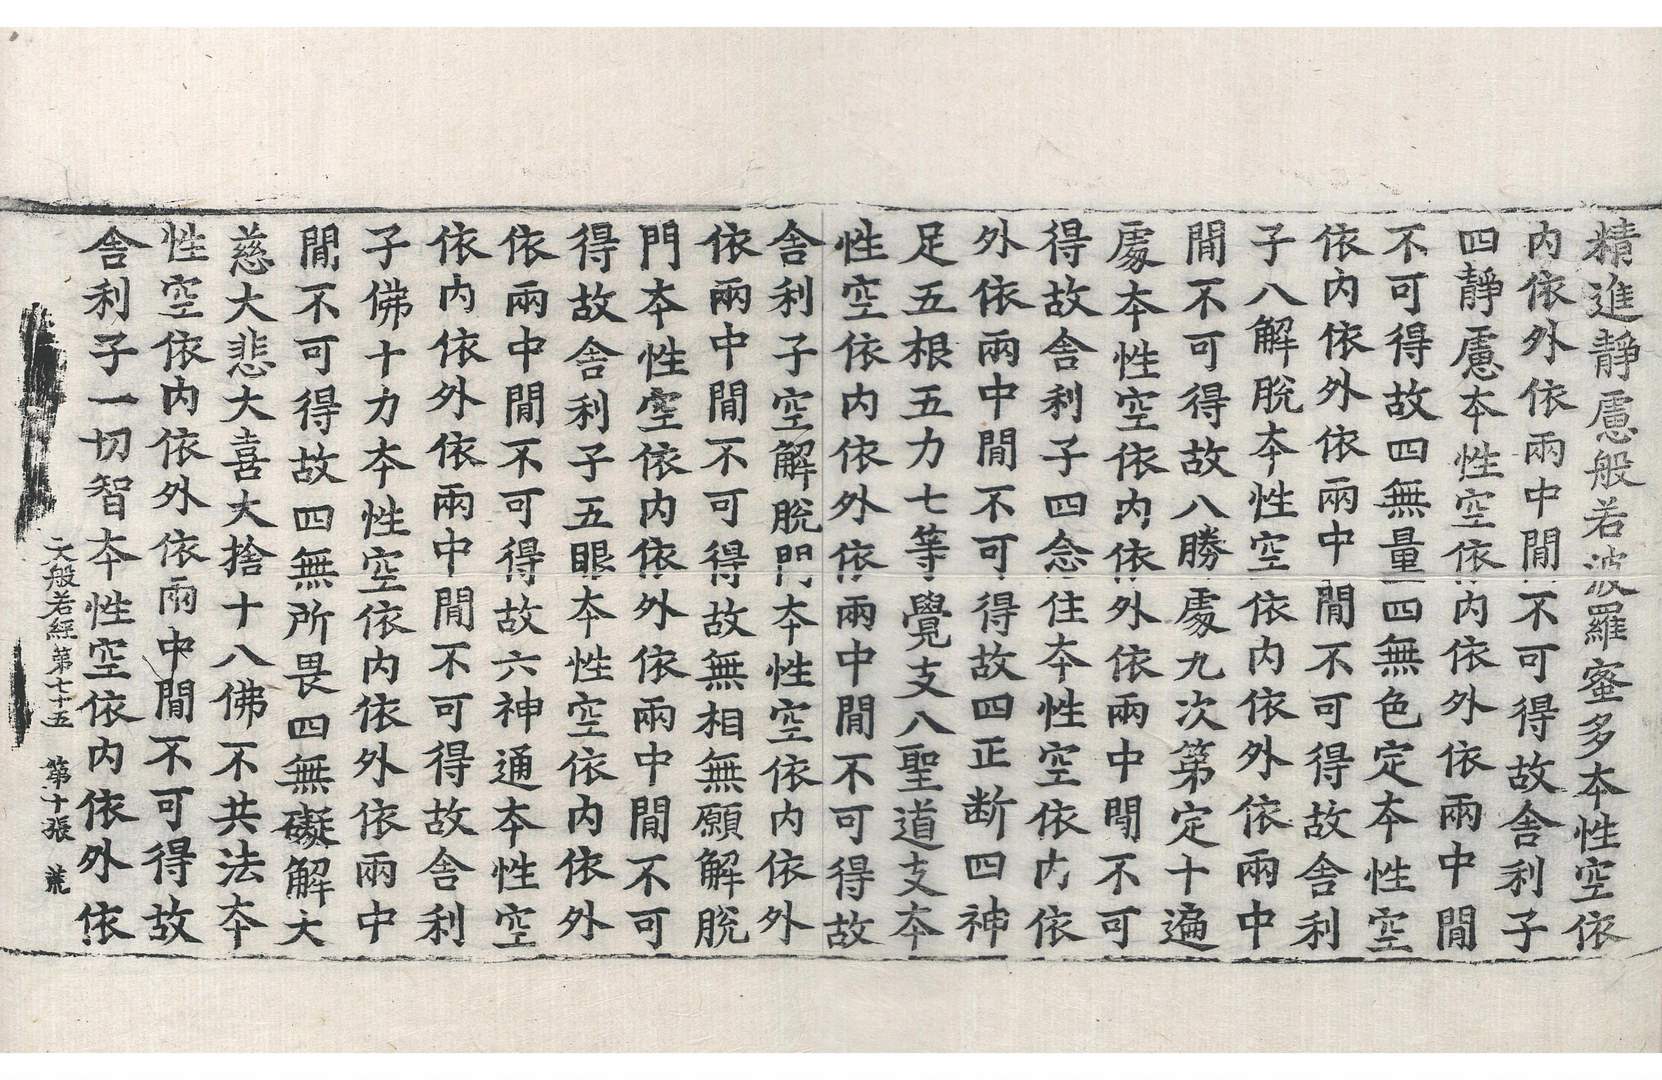 精進靜慮般若波羅蜜多本性空依
內依外依兩中閒不可得故舍利子
四靜慮本性空依內依外依兩中閒
不可得故四無量四無色定本性空
依內依外依兩中閒不可得故舍利
子八解脫本性空依內依外依兩中
閒不可得故八勝處九次第定十遍
處本性空依內依外依兩中閒不可
得故舍利子四念住本性空依內依
外依兩中閒不可得故四正斷四神
足五根五力七等覺支八聖道支本
性空依內依外依兩中閒不可得故
舍利子空解脫門本性空依內依外
依兩中閒不可得故無相無願解脫
門本性空依內依外依兩中閒不可
得故舍利子五眼本性空依內依外
依兩中閒不可得故六神通本性空
依內依外依兩中閒不可得故舍利
子佛十力本性空依內依外依兩中
閒不可得故四無所畏四無礙解大
慈大悲大喜大捨十八佛不共法本
性空依內依外依兩中閒不可得故
舍利子一切智本性空依內依外依
大般若經第七十五 第十張 荒